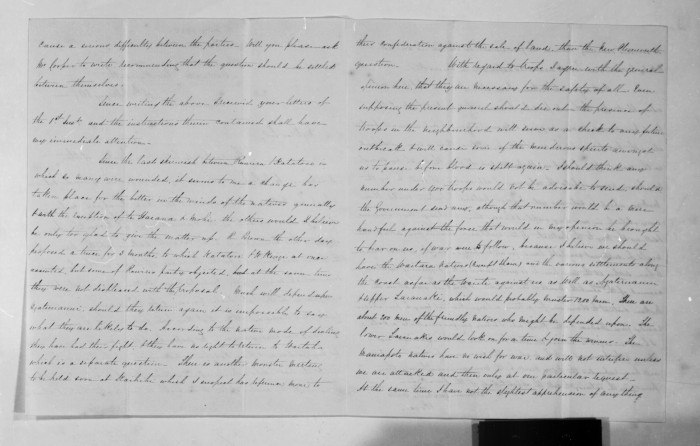 cause a serious difficulty between the parties. Will you please ask
Mr Cooper to write, recommending that the question should be settled
between themselves.
Since writing the above I received your letters of
the 1st Inst. and the instructions therein contained shall have
my immediate attention.
Since the last skirmish between Rawiri & Katatore in
which so many were wounded, it seems to me a change has
taken place for the better in the minds of the natives generally
& with the exception of
the others would, I believe
be only too glad to give the matter up. R. Brown the other day
proposed a truce for 3 months, to which Katatore & W. Kingi at once
assented, but some of Rawiri's party objected, but at the same time
they were not displeased with the proposal. Much will depend upon
should they return again it is impossible to say
what they are likely to do. According to the native mode of dealing
they have had their fight, & they have no right to return to
which is a separate question. There is another monster meeting
to be held soon at which I suspect has reference more to
their confederation against the sale of land, than the New Plymouth
question. With regard to troops I agree with the general
opinion here that they are necessary for the safety of all. Even
supposing the present quarrel should die out the presence of
troops in the neighbourhood will serve as a check to any future
outbreak & will cause some of the murderous spirits amongst
us to pause before blood is spilt again. I should think any
number under 400 troops would not be advisable to send, should
the Government send any, although that number would be a mere
handful against the force that would in my opinion be brought
to bear on us, if war were to follow, because I believe we should
have the Waitara natives and the various settlements along
the coast as far as the against us as well as Ngatiruanui
& Upper Taranakis, which would probably muster 1200 men. There are
about 200 men of the friendly natives who might be depended upon. The
lower Taranakis would look on for a time & join the winner. The
Maniapoto natives have no wish for war and will not interfere unless
we are attacked and then only at our particular request.
At the same time I have not the slightest apprehension of any thing